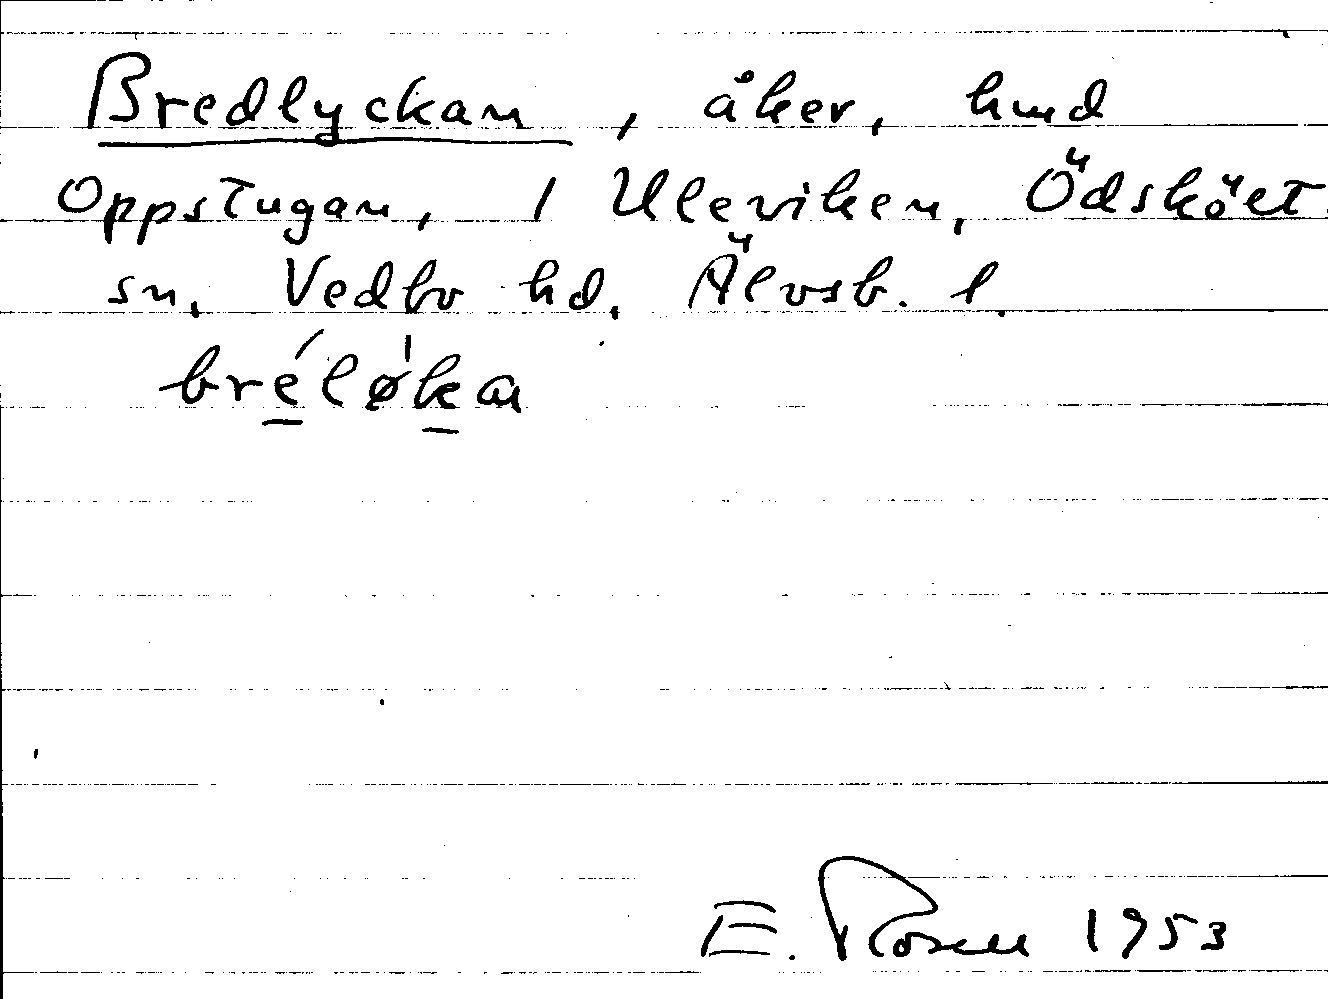 Bredlyckan, åker, hmd
Oppstugan, 1 Uleviken, Ödsköet
sn, Vedbo hd, Älvsb. l.
bréløkan
E. Rosell 1953